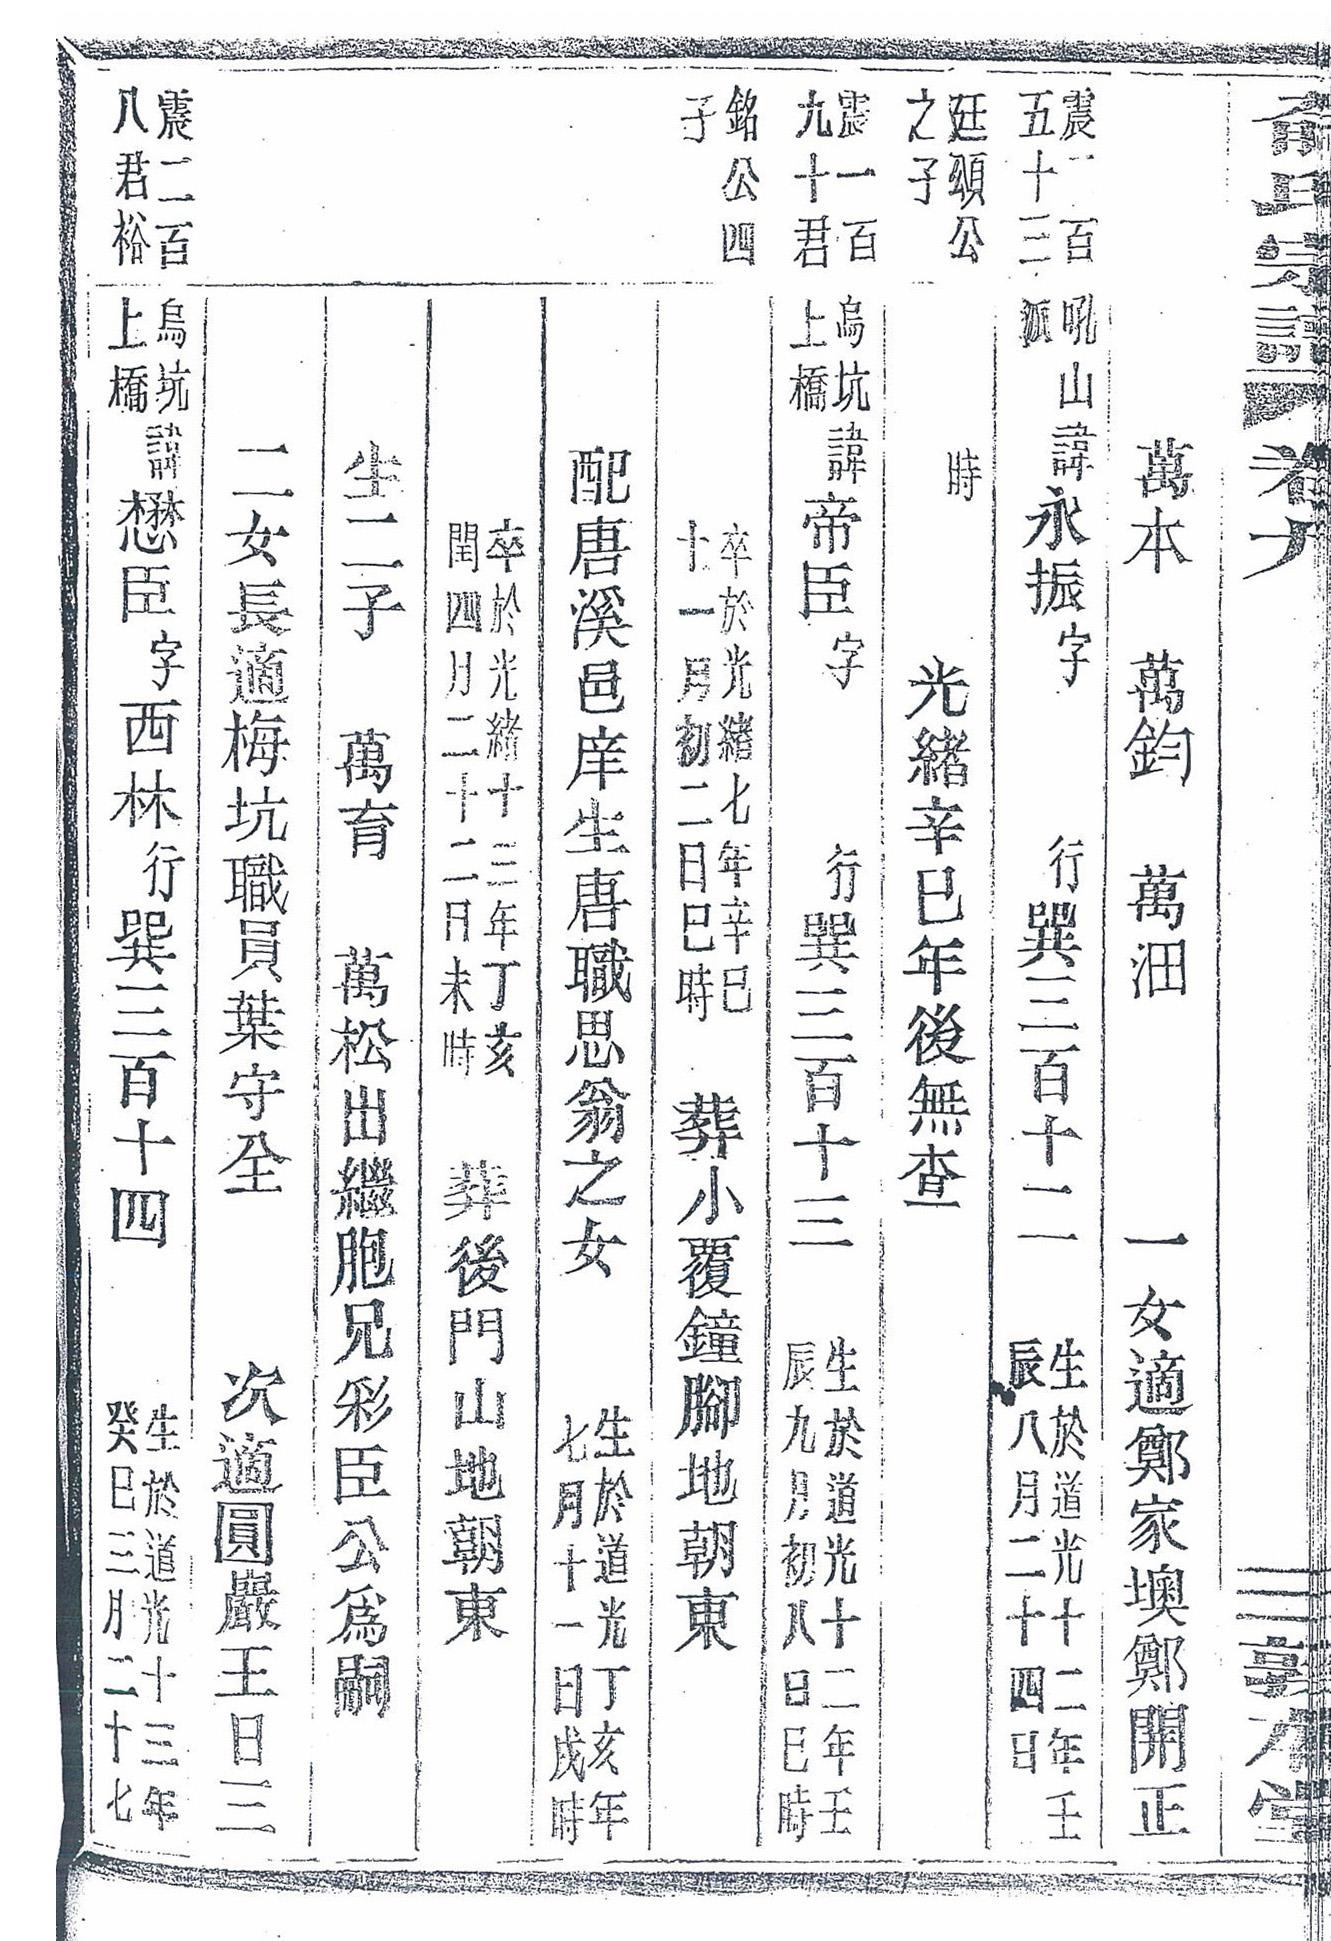 氏宗譜 卷
萬本 萬鈞 萬沺 一女適鄭家墺鄭開正
震一百
五十三
吼山
派
諱永振字 行巽三百十二
生於道光十二年壬
辰八月二十四日
廷頌公
之子
時
光緒辛巳年後無查
震一百
九十君
烏坑
上橋
諱帝臣字 行巽三百十三
生於道光十二年壬
辰九月初八日巳時
銘公四
子
卒於光緒七年辛巳
十一月初二日巳時
葬小覆鐘腳地朝東
配唐溪邑庠生唐職思翁之女
生於道光丁亥年
七月十一日戌時
卒於光緒十三年丁亥
閏四月二十二日未時
葬後門山地朝東
生二子 萬育 萬松出繼胞兄彩臣公爲嗣
二女長適梅坑職員葉守全 次適圓巖王日三
震二百
八君裕
烏坑
上橋
諱懋臣字西林行巽三百十四
生於道光十三年
癸巳三月二十七